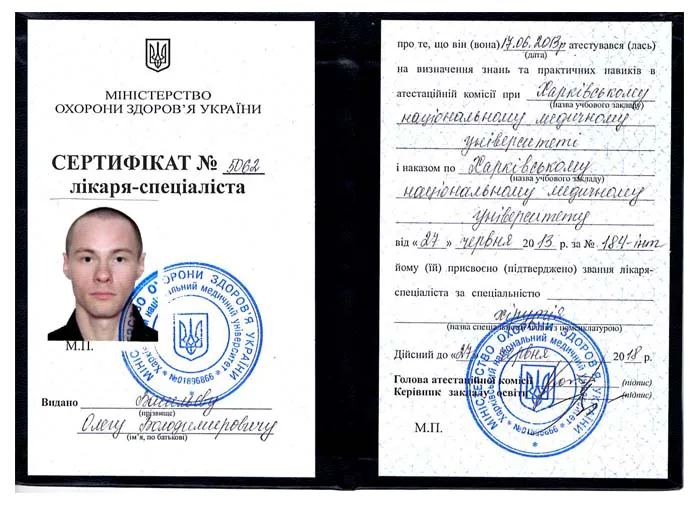 МІНІСТЕРСТВО
ОХОРОНИ ЗДОРОВ'Я УКРАЇНИ
СЕРТИФІКАТ № 5062
лікаря-спеціаліста
МІНІСТЕРСТВО ОХОРОНИ ЗДОРОВ'Я УКРАЇНИ
Харківський національний медичний університет
№01896866
М.П.
Видано
(прізвище)
Олегу Володимировичу
(ім'я, по батькові)
про те, що він (вона) 17.06.2013р атестувався (лась)
(дата)
на визначення знань та практичних навиків в
атестаційній комісії при Харківському
(назва учбового закладу)
національному медичному
університеті
і наказом по Харківському
(назва учбового закладу)
національному медичному
університету
від « 27 » червня 2013 р. за № 184-інт
йому (їй) присвоєно (підтверджено) звання лікаря-
спеціаліста за спеціальністю
Хірургія
(назва спеціальності з номенклатурою)
Дійсний до «27» червня 2018 р.
Голова атестаційної комісії (підпис)
Керівник закладу освіти (підпис)
МІНІСТЕРСТВО ОХОРОНИ ЗДОРОВ'Я УКРАЇНИ
Харківський національний медичний університет
№01896866
М.П.